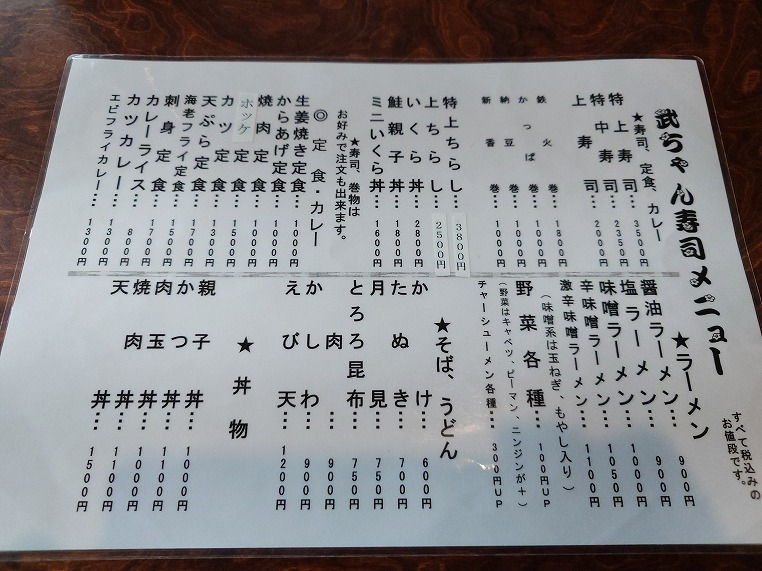 武ちゃん寿司メニュー
すべて税込みの
お値段です。
★寿司、定食、カレー
特上寿司…3500円
特中寿司…2350円
上寿司…2000円
鉄火巻…1800円
かっぱ巻…1000円
納豆巻…1000円
新香巻…1000円
特上ちらし…3800円
上ちらし…2500円
いくら丼…2800円
鮭親子丼…1800円
ミニいくら丼…1600円
★寿司、巻物は
お好みで注文も出来ます。
◎定食・カレー
生姜焼き定食…1000円
からあげ定食…1000円
焼肉定食…1000円
ホッケ定食…1500円
カツ定食…1000円
天ぷら定食…1300円
海老フライ定食…1500円
刺身定食…1700円
カレーライス…800円
カツカレー…1300円
エビフライカレー…1300円
★ラーメン
醤油ラーメン…900円
塩ラーメン…900円
味噌ラーメン…1000円
辛味噌ラーメン…1050円
激辛味噌ラーメン…1100円
(味噌系は玉ねぎ、もやし入り)
野菜各種…100円UP
(野菜はキャベツ、ピーマン、ニンジンが+)
チャーシューメン各種…300円UP
★そば、うどん
かけ…600円
たぬき…700円
月見…750円
とろろ昆布…750円
肉…900円
かしわ…900円
えび天…1200円
★丼物
親子丼…1000円
かつ丼…1100円
肉玉丼…1100円
焼肉丼…1100円
天丼…1500円